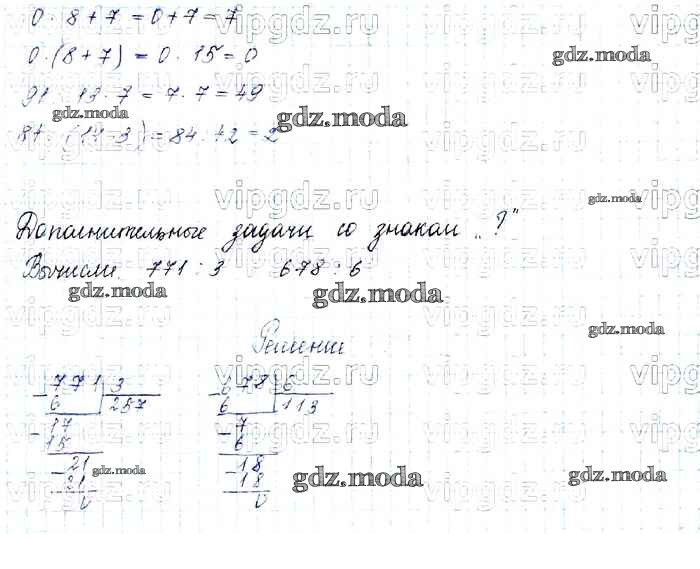 0 · 8 + 7 = 0 + 7 = 7
0 · (8 + 7) = 0 · 15 = 0
91 : 13 · 7 = 7 · 7 = 49
84 : (14 · 3) = 84 : 42 = 2
Дополнительные задачи со знаком „?"
Вычисли 771 : 3 678 : 6
Решение
771 3 678 6
6 257 6 113
17 7
15 6
21 18
21 18
0 0
vipgdz.ru
gdz.moda